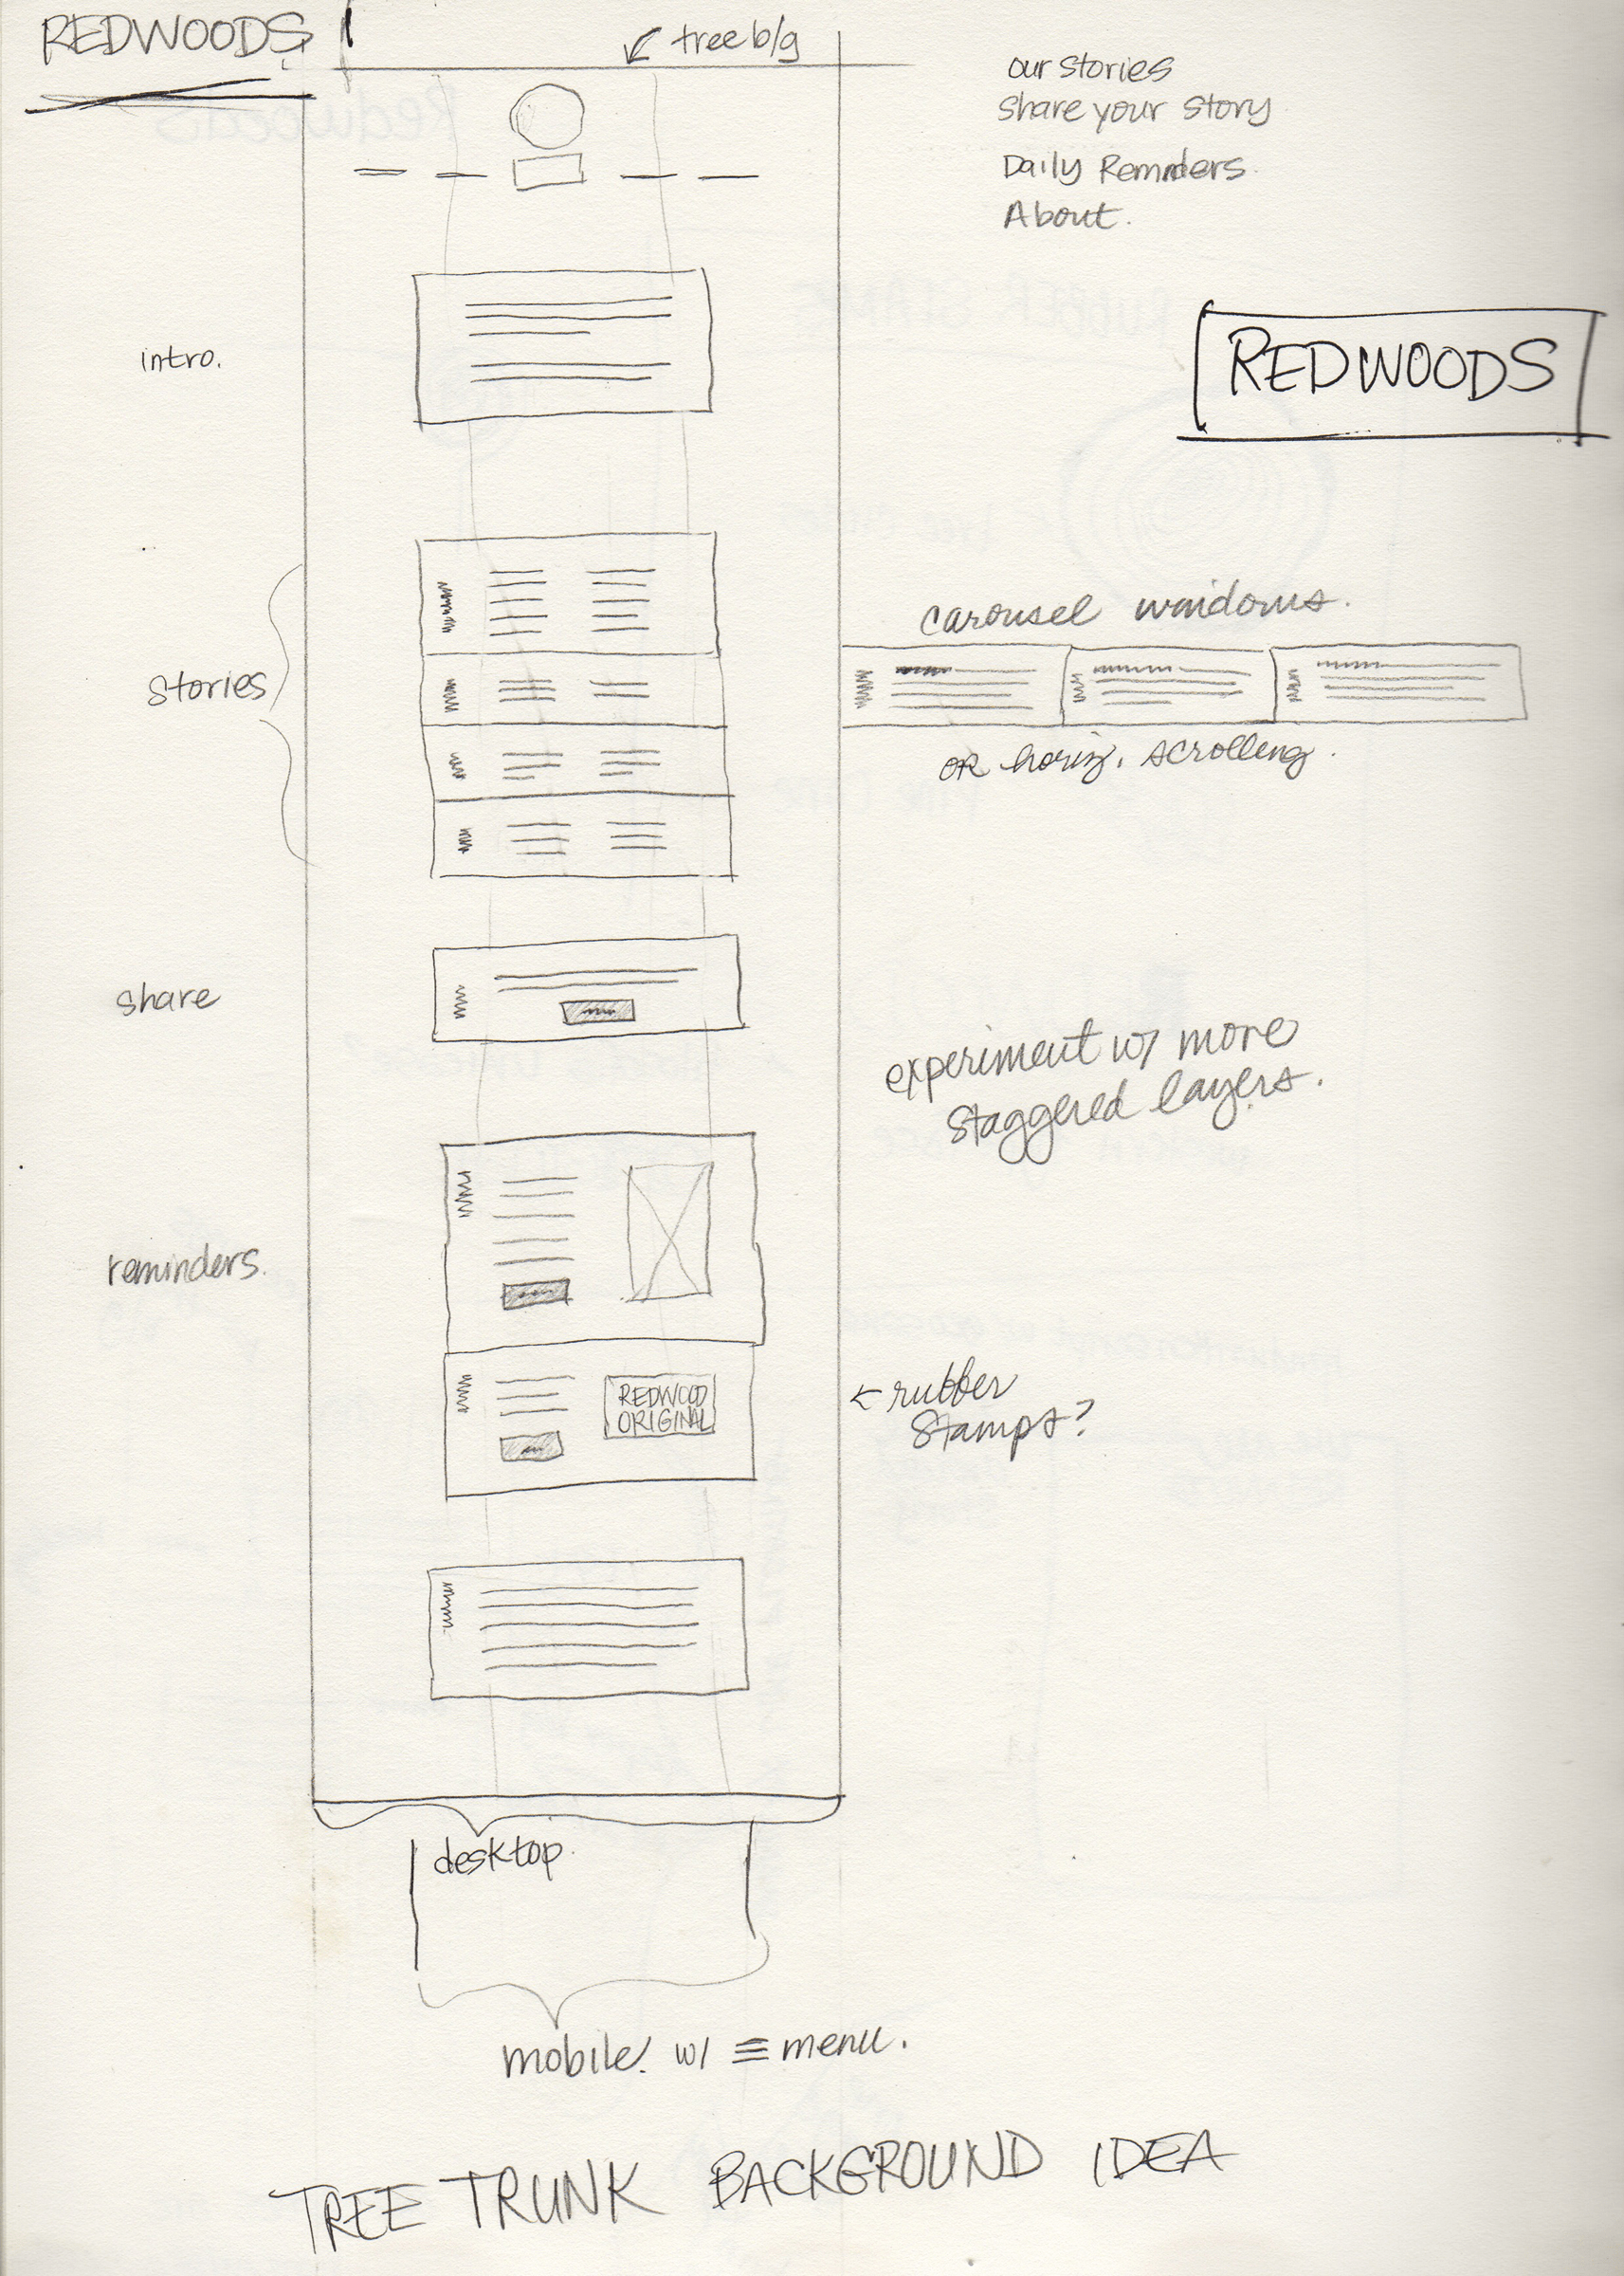 REDWOODS
tree b/g
our stories
Share your story
Daily Reminders.
About.
intro.
REDWOODS
carousel windows.
stories
OR horiz. scrolling.
share
experiment w/ more
staggered layers.
reminders.
REDWOOD
ORIGINAL
← rubber
stamps?
desktop.
mobile. w/ ≡ menu.
TREE TRUNK BACKGROUND IDEA